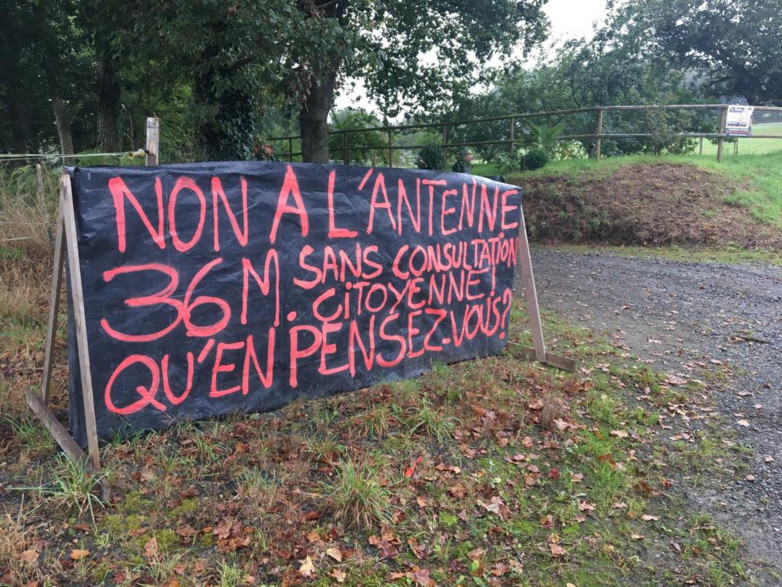 NON A L'ANTENNE
36M. SANS CONSULTATION
CITOYENNE
QU'EN PENSEZ-VOUS?